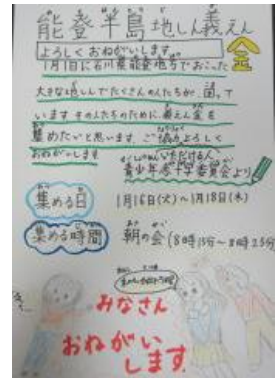 能登半島地しん義えん金
よろしくおねがいします
1月1日に石川県能登地方でおこった
大きな地しんでたくさんの人たちが、困って
います。その人たちのために義えん金を
集めたいと思います。ご協力よろしく
おねがいします
青少年赤十字委員会より
集める日
1月16日(火)~1月18日(木)
集める時間
朝の会(8時15分~8時25分)
みなさん
おねがい
します